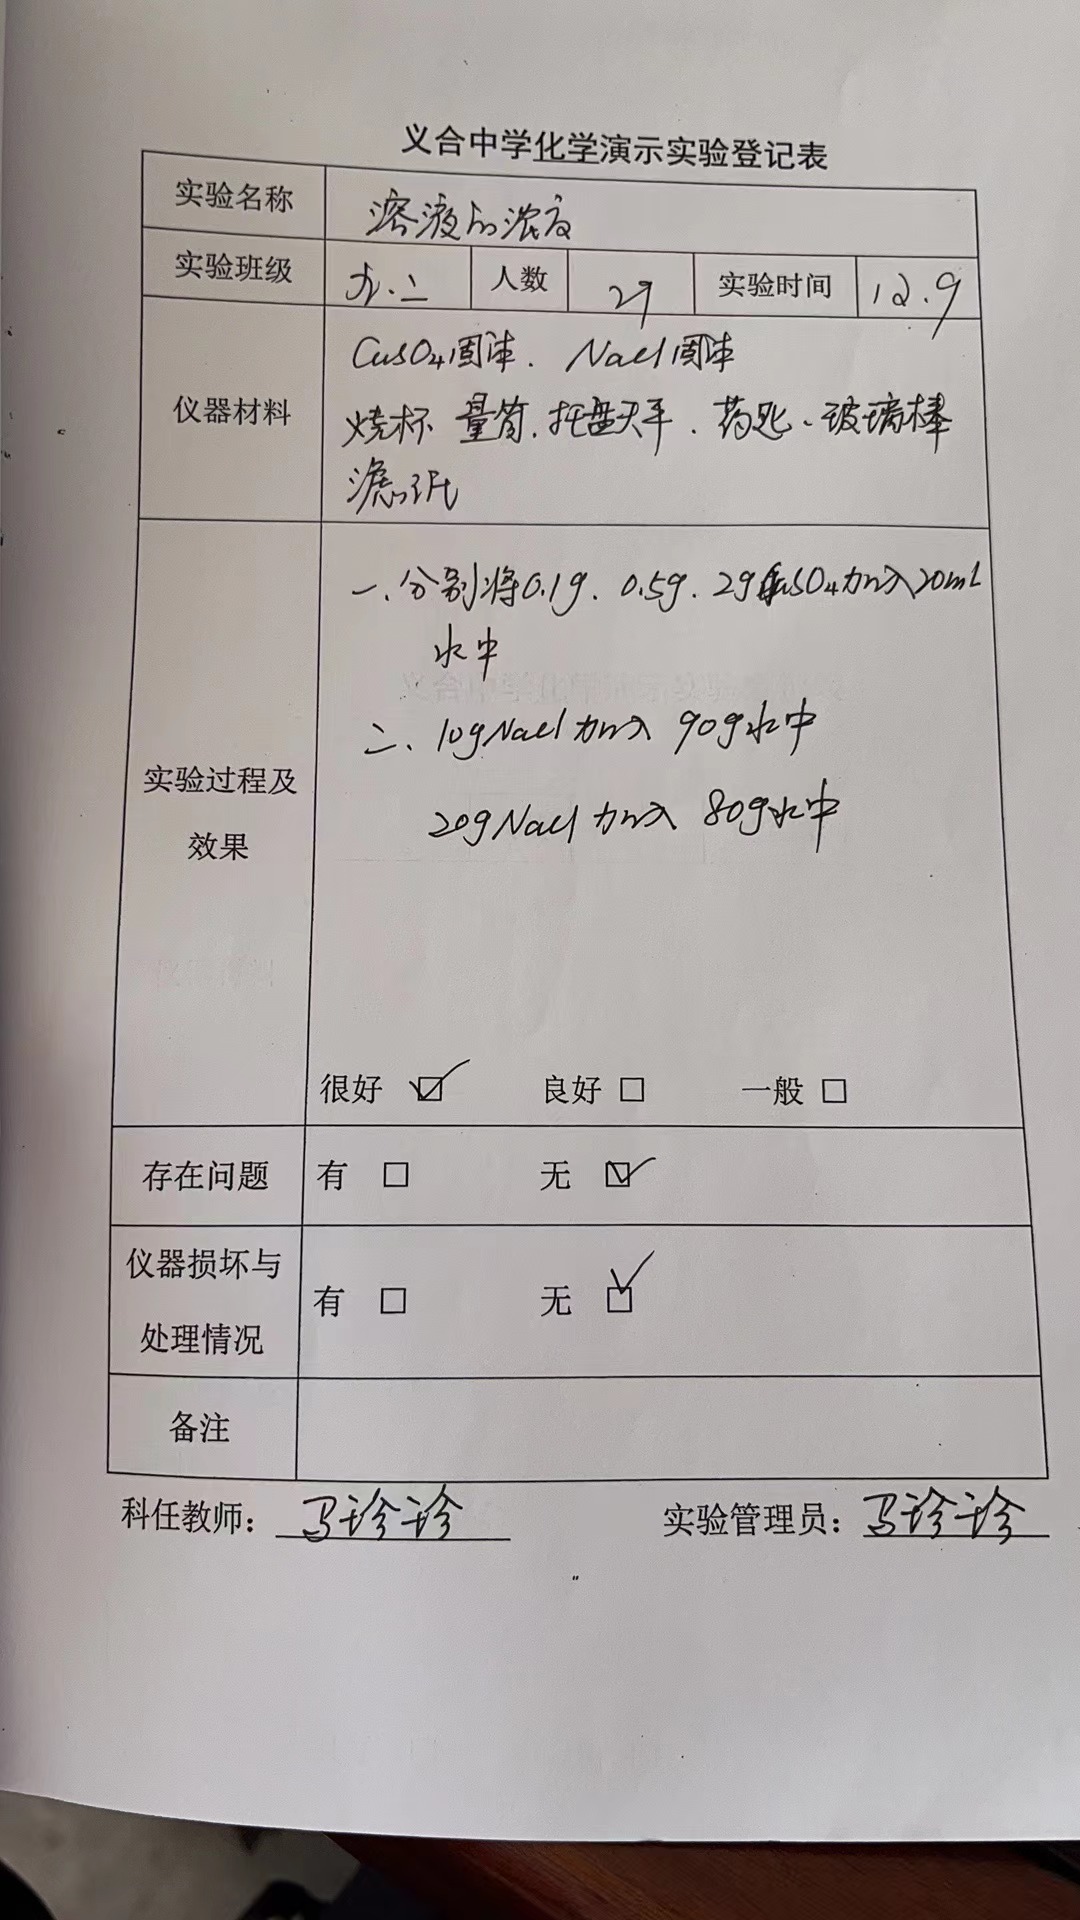 义合中学化学演示实验登记表
实验名称 溶液的浓度
实验班级 九.二 人数 29 实验时间 12.9
CuSO4固体.NaCl固体
仪器材料 烧杯 量筒.托盘天平.药匙.玻璃棒
滤纸
一.分别将0.1g.0.5g.2gCuSO4加入20mL
水中
二.10gNaCl加入90g水中
20gNaCl加入80g水中
实验过程及
效果
很好 ☑ 良好 □ 一般 □
存在问题 有 □ 无 ☑
仪器损坏与
有 □ 无 ☑
处理情况
备注
科任教师：马诊诊 实验管理员：马诊诊